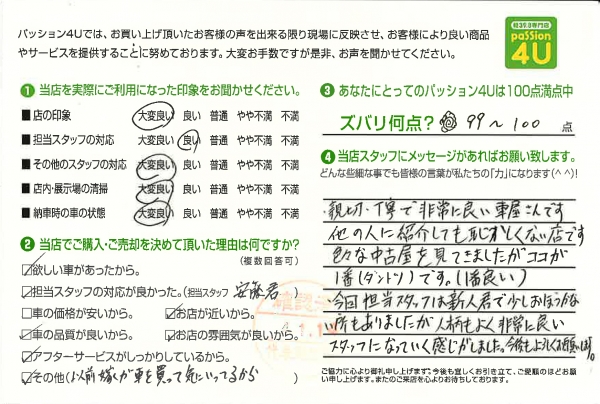 パッション4Uでは、お買い上げ頂いたお客様の声を出来る限り現場に反映させ、お客様により良い商品
やサービスを提供することに努めております。大変お手数ですが是非、お声を聞かせてください。
軽39.8専門店
passion
4U
1 当店を実際にご利用になった印象をお聞かせください。
■ 店の印象 大変良い 良い 普通 やや不満 不満
■ 担当スタッフの対応 大変良い 良い 普通 やや不満 不満
■ その他のスタッフの対応 大変良い 良い 普通 やや不満 不満
■ 店内・展示場の清掃 大変良い 良い 普通 やや不満 不満
■ 納車時の車の状態 大変良い 良い 普通 やや不満 不満
2 当店でご購入・ご売却を決めて頂いた理由は何ですか?
(複数回答可)
☑欲しい車があったから。
☑担当スタッフの対応が良かった。(担当スタッフ 安藤君)
□車の価格が安いから。 ☑お店が近いから。
☑車の品質が良いから。 ☑お店の雰囲気が良いから。
☑アフターサービスがしっかりしているから。
☑その他(以前嫁が車を買って気にいってるから)
3 あなたにとってのパッション4Uは100点満点中
ズバリ何点? 99〜100 点
4 当店スタッフにメッセージがあればお願い致します。
どんな些細な事でも皆様の言葉が私たちの「力」になります(^^)!
親切、丁寧で非常に良い車屋さんです
他の人に紹介しても恥ずかしくない店です
色々な中古屋を見てきましたがココが
1番(ダントツ)です。(1番良い)
今回担当スタッフは新人君で少しおぼつかな
い所もありましたが人柄もよく非常に良い
スタッフになっていく感じがしました。今後もよろしくお願いします。
ご協力に心より御礼申し上げます。今後も宜しくお引き立て、ご愛顧のほどお願
い申し上げます。またのご来店を心よりお待ちしております。